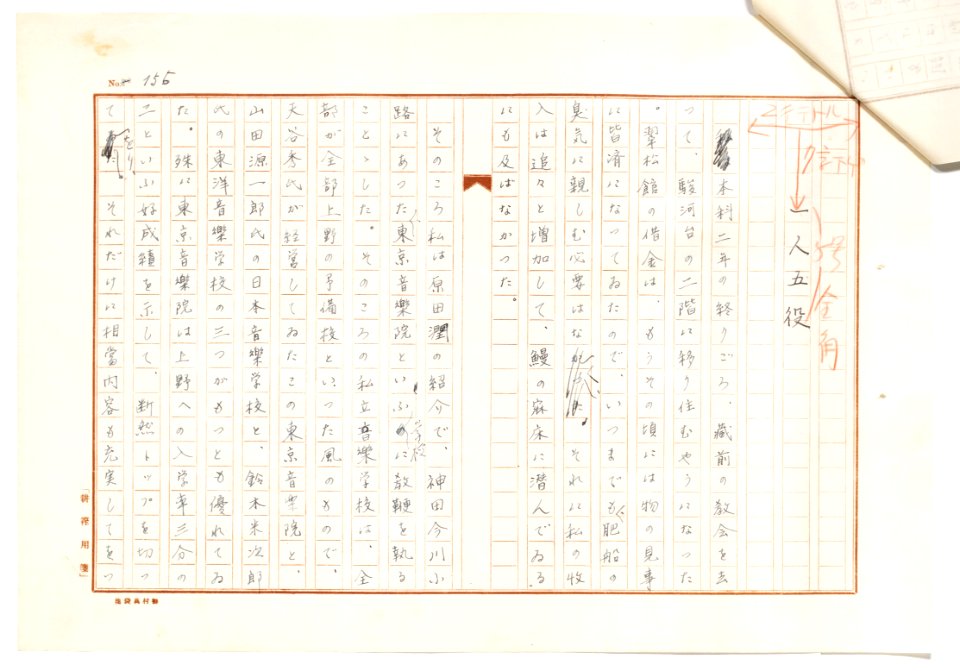 No. 155
一人五役
本科二年の終りごろ、藏前の教会を去
つて、駿河台の二階に移り住むやうになつた
。翠松館の借金は、もうその頃には物の見事
に皆済になつてゐたので、いつまでも肥船の
臭気に親しむ必要はな、それに私の收
入は追々と増加して、鰻の寐床に潜んでゐる
にも及ばなかつた。
そのころ私は原田潤の紹介で、神田今川小
路にあつた東京音樂院といふ学校に教鞭を執る
ことゝした。そのころの私立音樂学校は、全
部が全部上野の予備校といつた風のもので、
天谷秀氏が経営してゐたこの東京音楽院と、
山田源一郎氏の日本音樂学校と、鈴木米次郎
氏の東洋音樂学校の三つがもつとも優れてゐ
た。殊に東京音樂院は上野への入学率三分の
二といふ好成績を示して、断然トップを切つ
てをり、それだけに相當内容も充実してをつ
5号全角